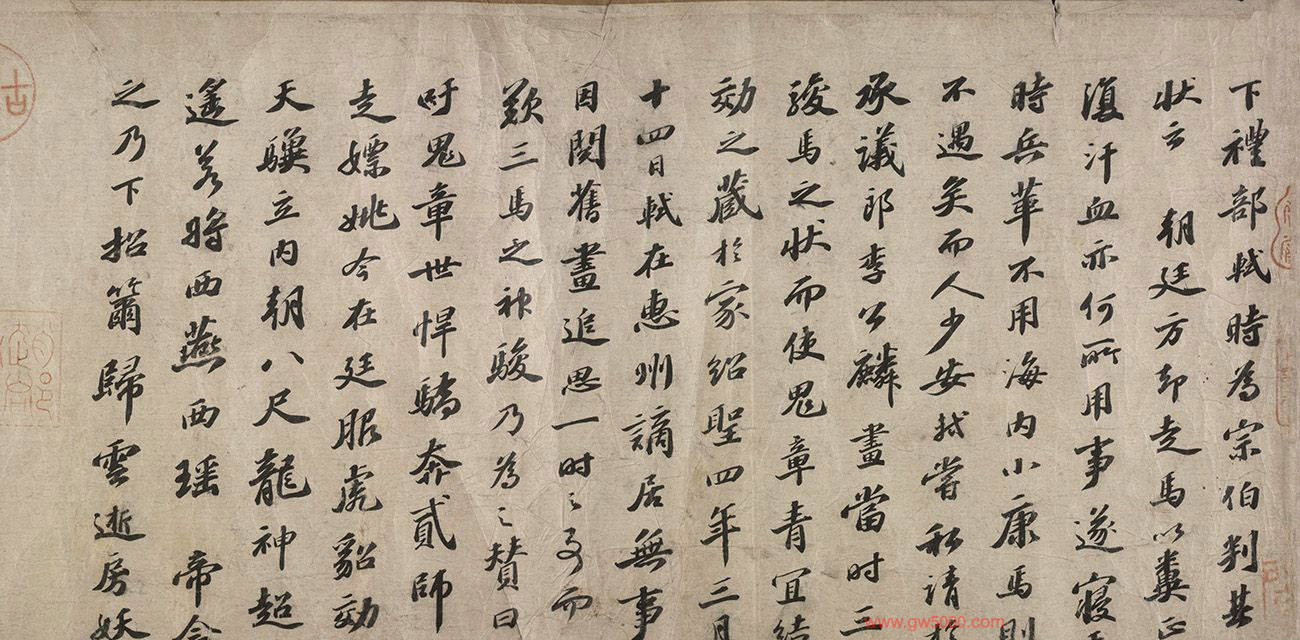 下禮部軾時為宗伯判其
狀云 朝廷方却走馬以糞正
復汗血亦何所用事遂寢
時兵革不用海内小康馬則
不遇矣而人少安軾嘗私請於
承議郎李公麟畫當时三
駿馬之狀而使鬼章青宜結
効之藏於家紹聖四年三月
十四日軾在惠州謫居無事
因閱舊畫追思一时之事而
歎三馬之神駿乃為之贊曰
吁鬼章世悍驕奔貳師
走嫖姚今在廷服虎貂効
天驥立内朝八尺龍神超
遙若將西燕西瑶 帝念
之乃下招籋歸雲逝房妖
古
www.gw5000.com